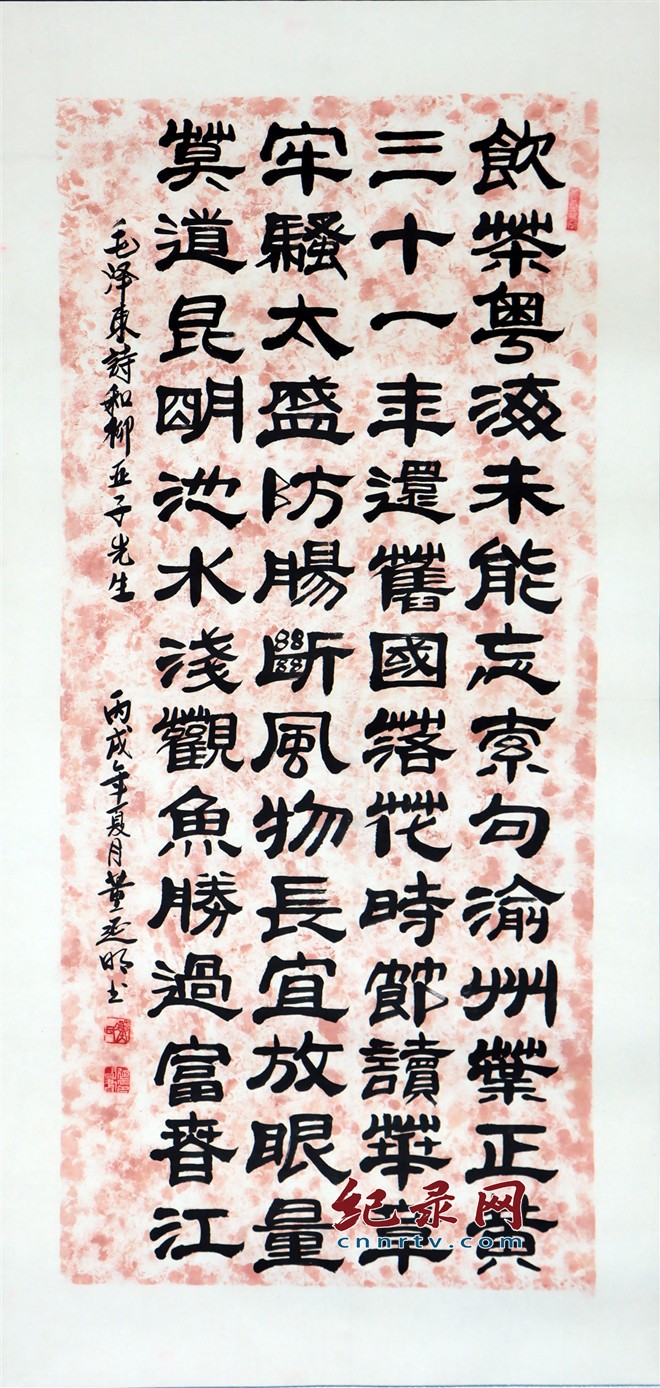 飲茶粤海未能忘索句渝州葉正黄
三十一年還舊國落花時節讀華章
牢騷太盛防腸斷風物長宜放眼量
莫道昆明池水淺觀魚勝過富春江
毛泽東詩和柳亚子先生
丙戌年夏月黄延明书
纪录网
cnnrtv.com